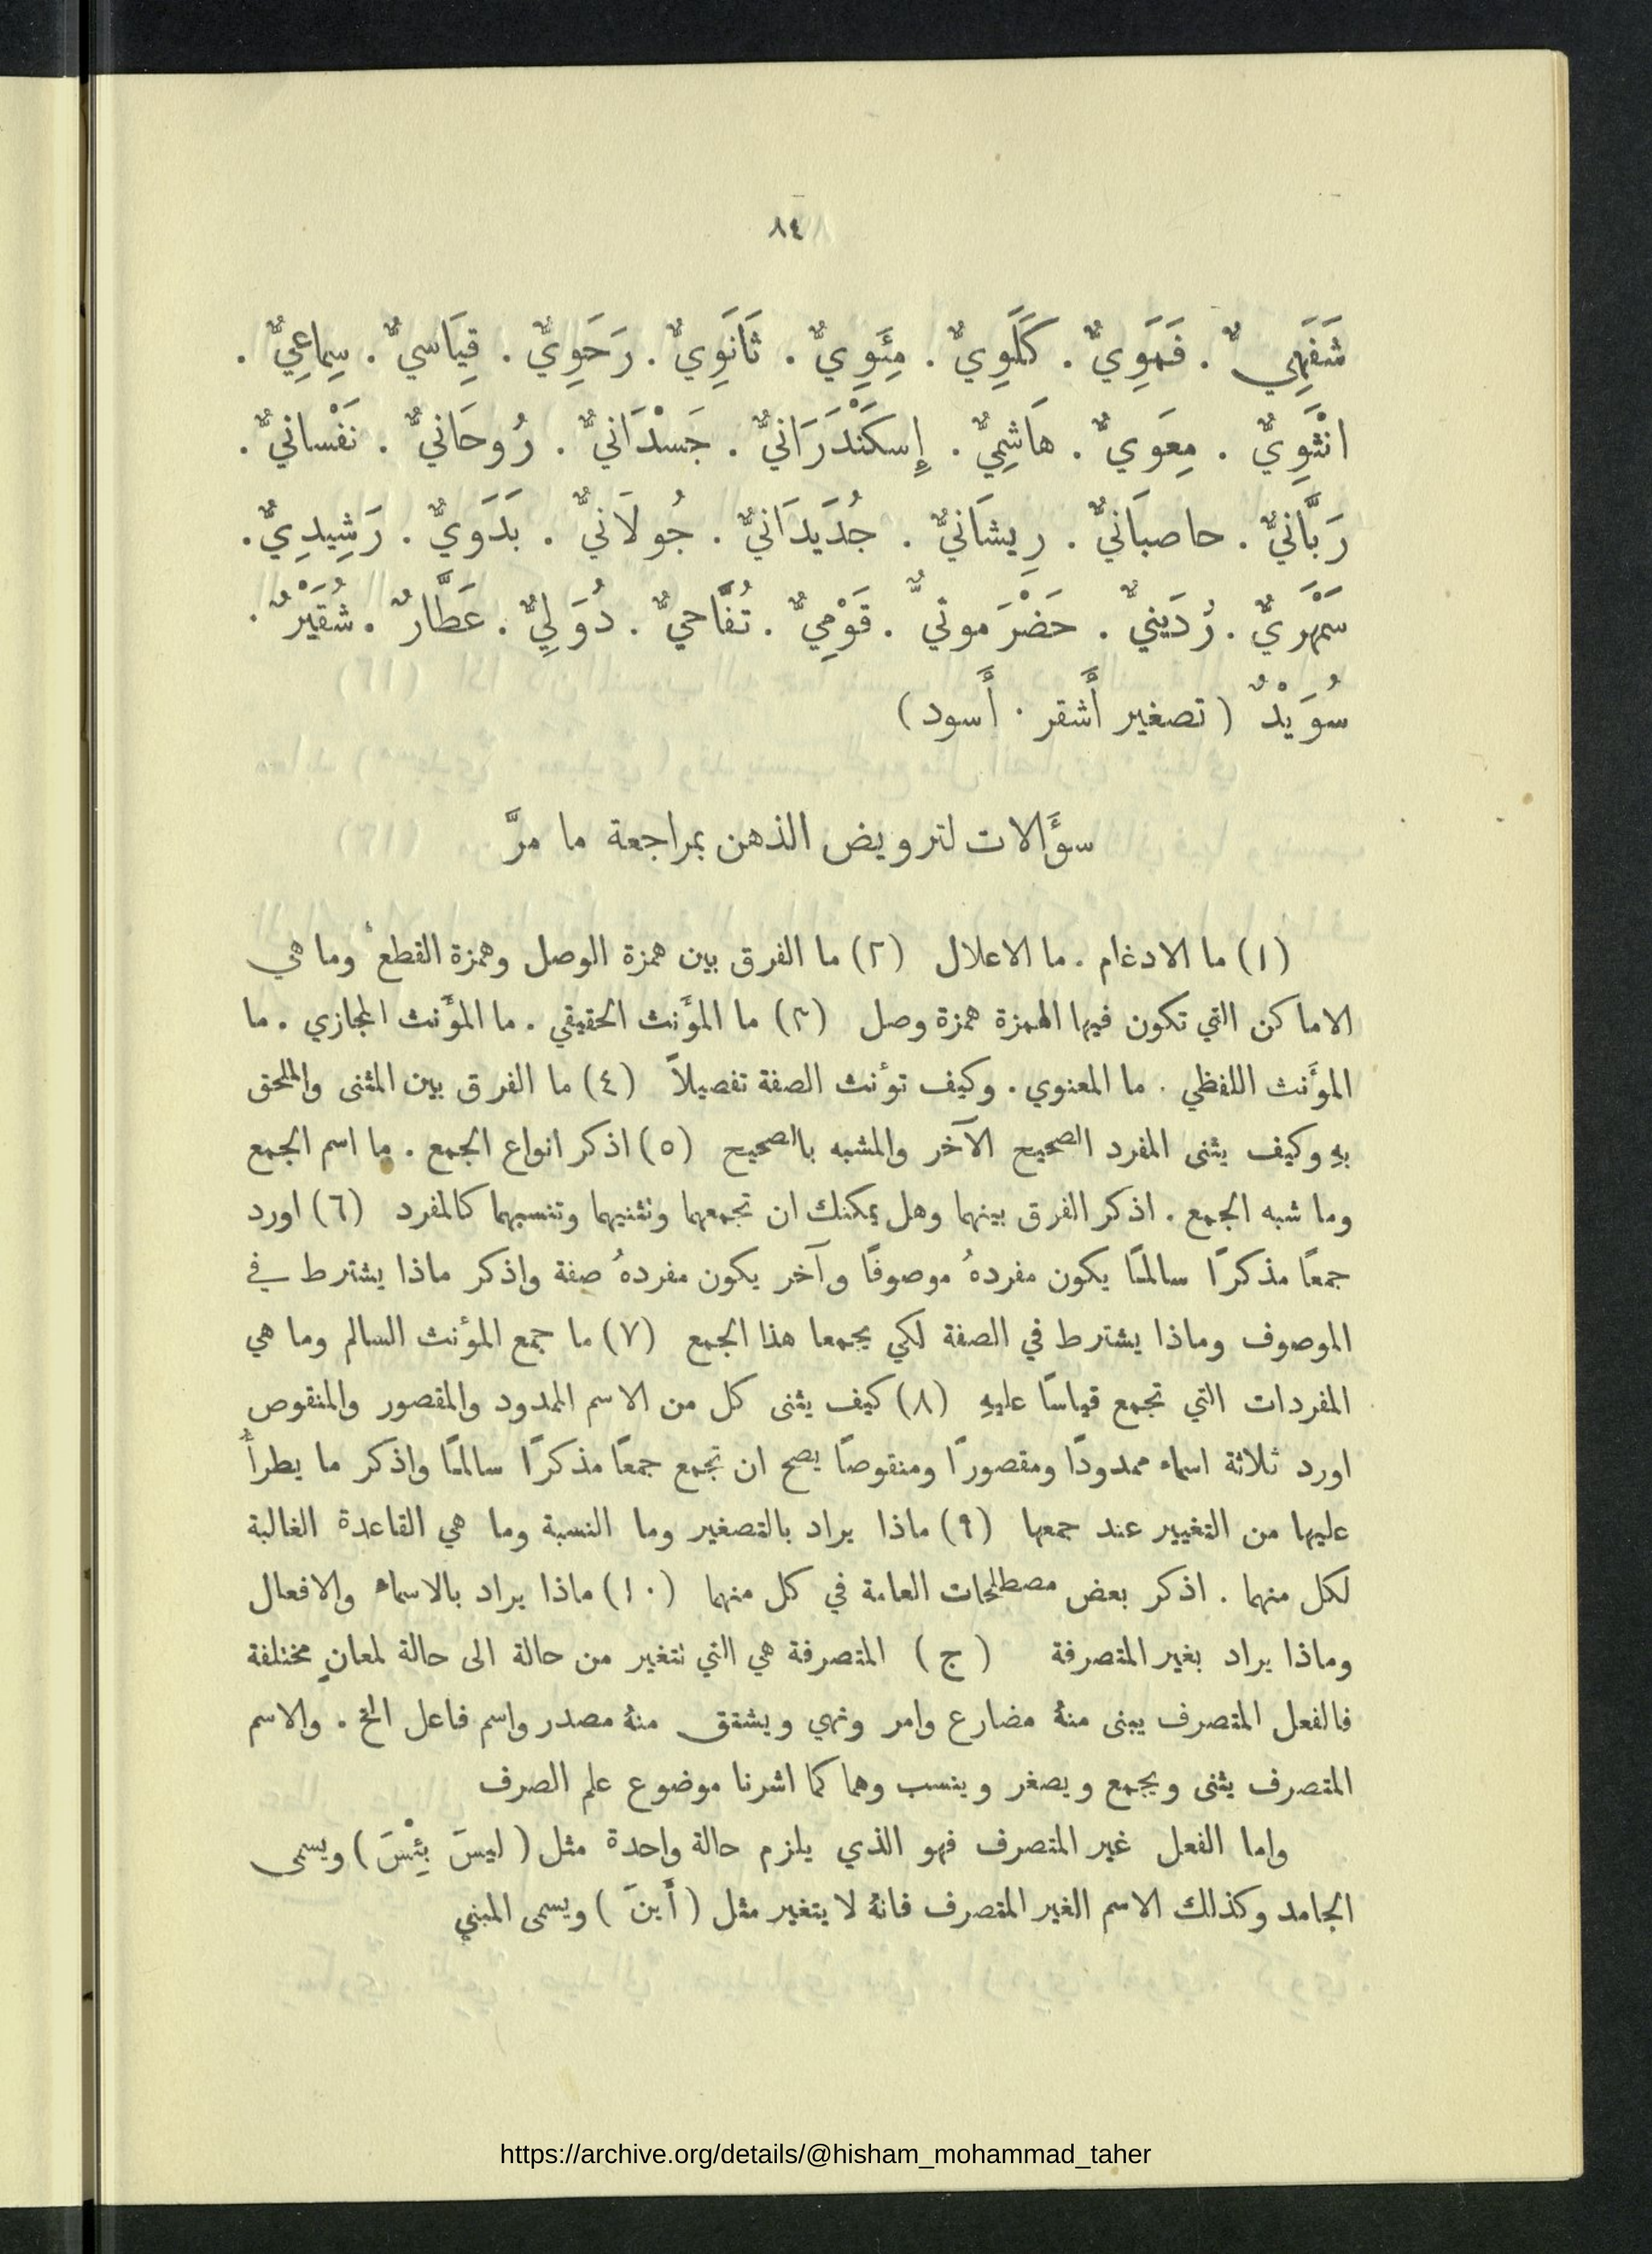 ٨٤
شَفَهِيٌّ . فَمَوِيٌّ . كَلَوِيٌّ . مِئَوِيٌّ . ثَانَوِيٌّ . رَحَوِيٌّ . قِيَاسيٌّ . سِماعِيٌّ .
انْثَوِيٌّ . مِعَوِيٌّ . هَاشِمِيٌّ . إِسكَنْدَرَانيٌّ . جَسْدَانيٌّ . رُوحَانيٌّ . نَفْسانيٌّ .
رَبَّانيٌّ . حاصبَانيٌّ . رِيشَانيٌّ . جُدَيدَانيٌّ . جُولَانيٌّ . بَدَوِيٌّ . رَشِيدِيٌّ .
سَمْهَرِيٌّ . رُدَينيٌّ . حَضْرَموتيٌّ . قَوْمِيٌّ . تُفَّاحيٌّ . دُوَلِيٌّ . عَطَّارٌ . شُقَيْرٌ .
سُوَيْدٌ ( تصغير أَشقر . أَسود )
سؤَالات لترويض الذهن بمراجعة ما مرَّ
(١) ما الادغام . ما الاعلال (٢) ما الفرق بين همزة الوصل وهمزة القطع وما هي
الاماكن التي تكون فيها الهمزة همزة وصل (٣) ما المؤَنث الحقيقي . ما المؤَنث المجازي . ما
المؤَنث اللفظي . ما المعنوي . وكيف تؤنث الصفة تفصيلاً (٤) ما الفرق بين المثنى والملحق
بهِ وكيف يثنى المفرد الصحيح الآخر والمشبه بالصحيح (٥) اذكر انواع الجمع . ما اسم الجمع
وما شبه الجمع . اذكر الفرق بينهما وهل يمكنك ان تجمعهما وتثنيهما وتنسبهما كالمفرد (٦) اورد
جمعًا مذكرًا سالمًا يكون مفردهُ موصوفًا وآخر يكون مفردهُ صفة واذكر ماذا يشترط في
الموصوف وماذا يشترط في الصفة لكي يجمعا هذا الجمع (٧) ما جمع المؤنث السالم وما هي
المفردات التي تجمع قياسًا عليهِ (٨) كيف يثنى كل من الاسم الممدود والمقصور والمنقوص
اورد ثلاثة اسماء ممدودًا ومقصورًا ومنقوصًا يصح ان تجمع جمعًا مذكرًا سالمًا واذكر ما يطرأُ
عليها من التغيير عند جمعها (٩) ماذا يراد بالتصغير وما النسبة وما هي القاعدة الغالبة
لكل منهما . اذكر بعض مصطلحات العامة في كل منهما (١٠) ماذا يراد بالاسماء والافعال
وماذا يراد بغير المتصرفة ( ج ) المتصرفة هي التي نتغير من حالة الى حالة لمعانٍ مختلفة
فالفعل المتصرف يبنى منهُ مضارع وامر ونهي ويشتق منهُ مصدر واسم فاعل الخ . والاسم
المتصرف يثنى ويجمع ويصغر وينسب وهما كما اشرنا موضوع علم الصرف
واما الفعل غير المتصرف فهو الذي يلزم حالة واحدة مثل ( ليسَ بِئْسَ ) ويسمى
الجامد وكذلك الاسم الغير المتصرف فانهُ لا يتغير مثل ( أَينَ ) ويسمى المبني
https://archive.org/details/@hisham_mohammad_taher